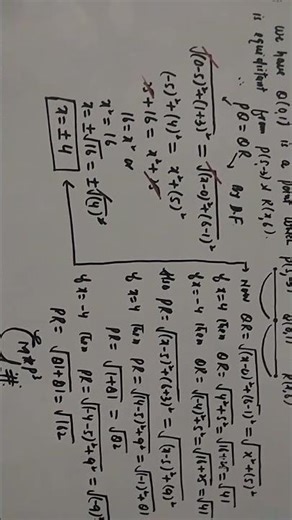 we have Q(0,1) is a point where
is equidistant from P(5,-3) & R(x,6).
∴ PQ = QR → By D.F
√(0-5)²+(1+3)² = √(x-0)²+(6-1)²
(-5)²+(4)² = x²+(5)²
25+16 = x²+25
16 = x² or
x² = 16
x = ±√16 = ±√(4)²
x = ±4
P(5,-3) Q(0,1) R(x,6)
→ Now QR = √(x-0)²+(6-1)² = √x²+(5)²
If x=4 then QR = √4²+5² = √16+25 = √41
If x=-4 then QR = √(-4)²+5² = √16+25 = √41
Also PR = √(x-5)²+(6+3)² = √(x-5)²+(9)²
If x=4 then PR = √(4-5)²+9² = √(-1)²+81
PR = √1+81 = √82
If x=-4 then PR = √(-4-5)²+9² = √(-9)²
PR = √81+81 = √162